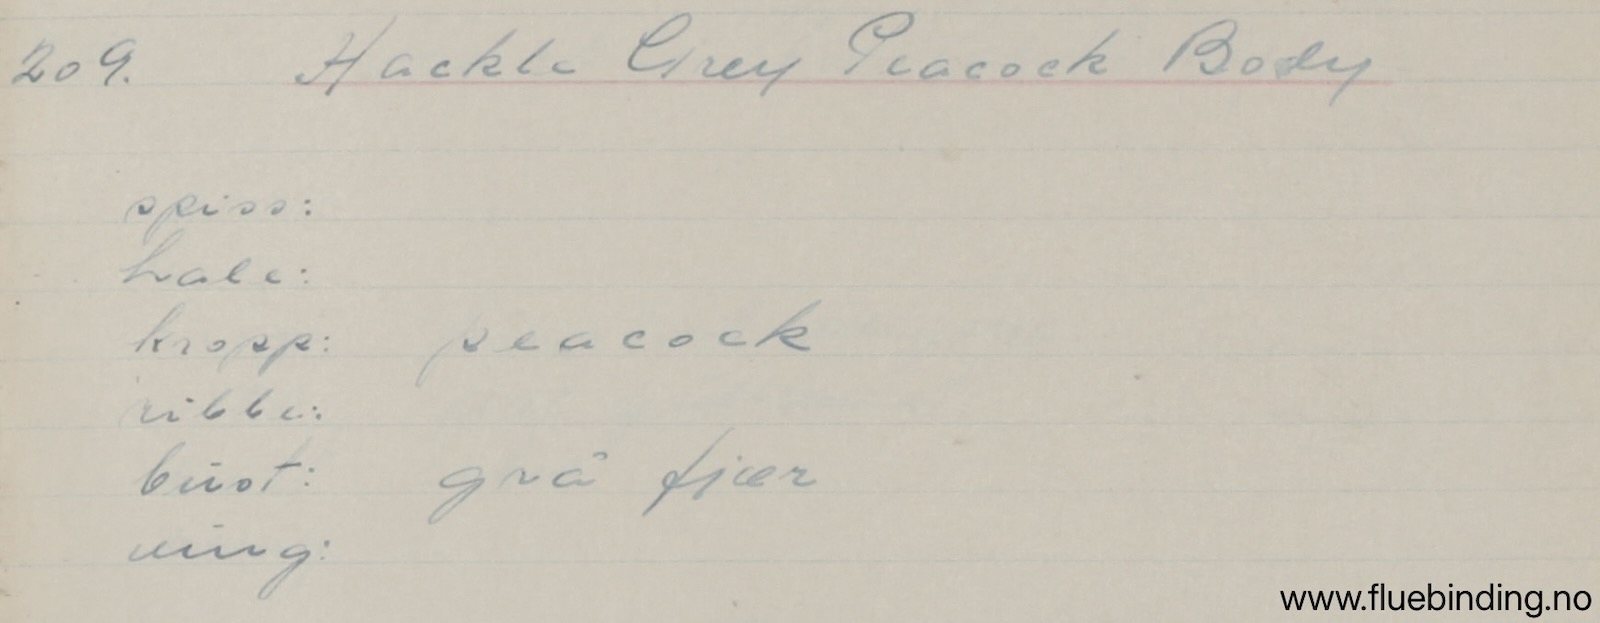 209. Hackle Grey Peacock Body
spiss:
hale:
kropp: peacock
ribbe:
bust: grå fjær
ving:
www.fluebinding.no